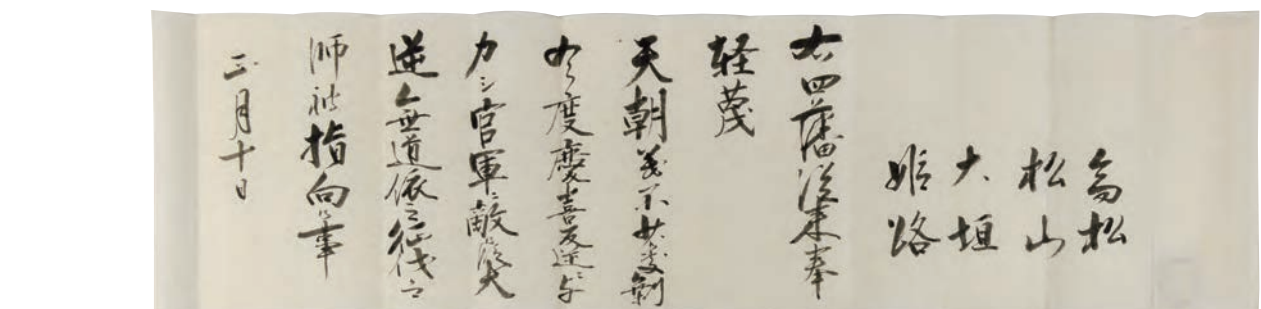 高松
松山
大垣
姫路
右四藩従来奉
軽蔑
天朝義不少處剰
今度慶喜反逆ニ与
力シ官軍ニ敵候段大
逆無道依之征伐之
師被指向候事
正月十日